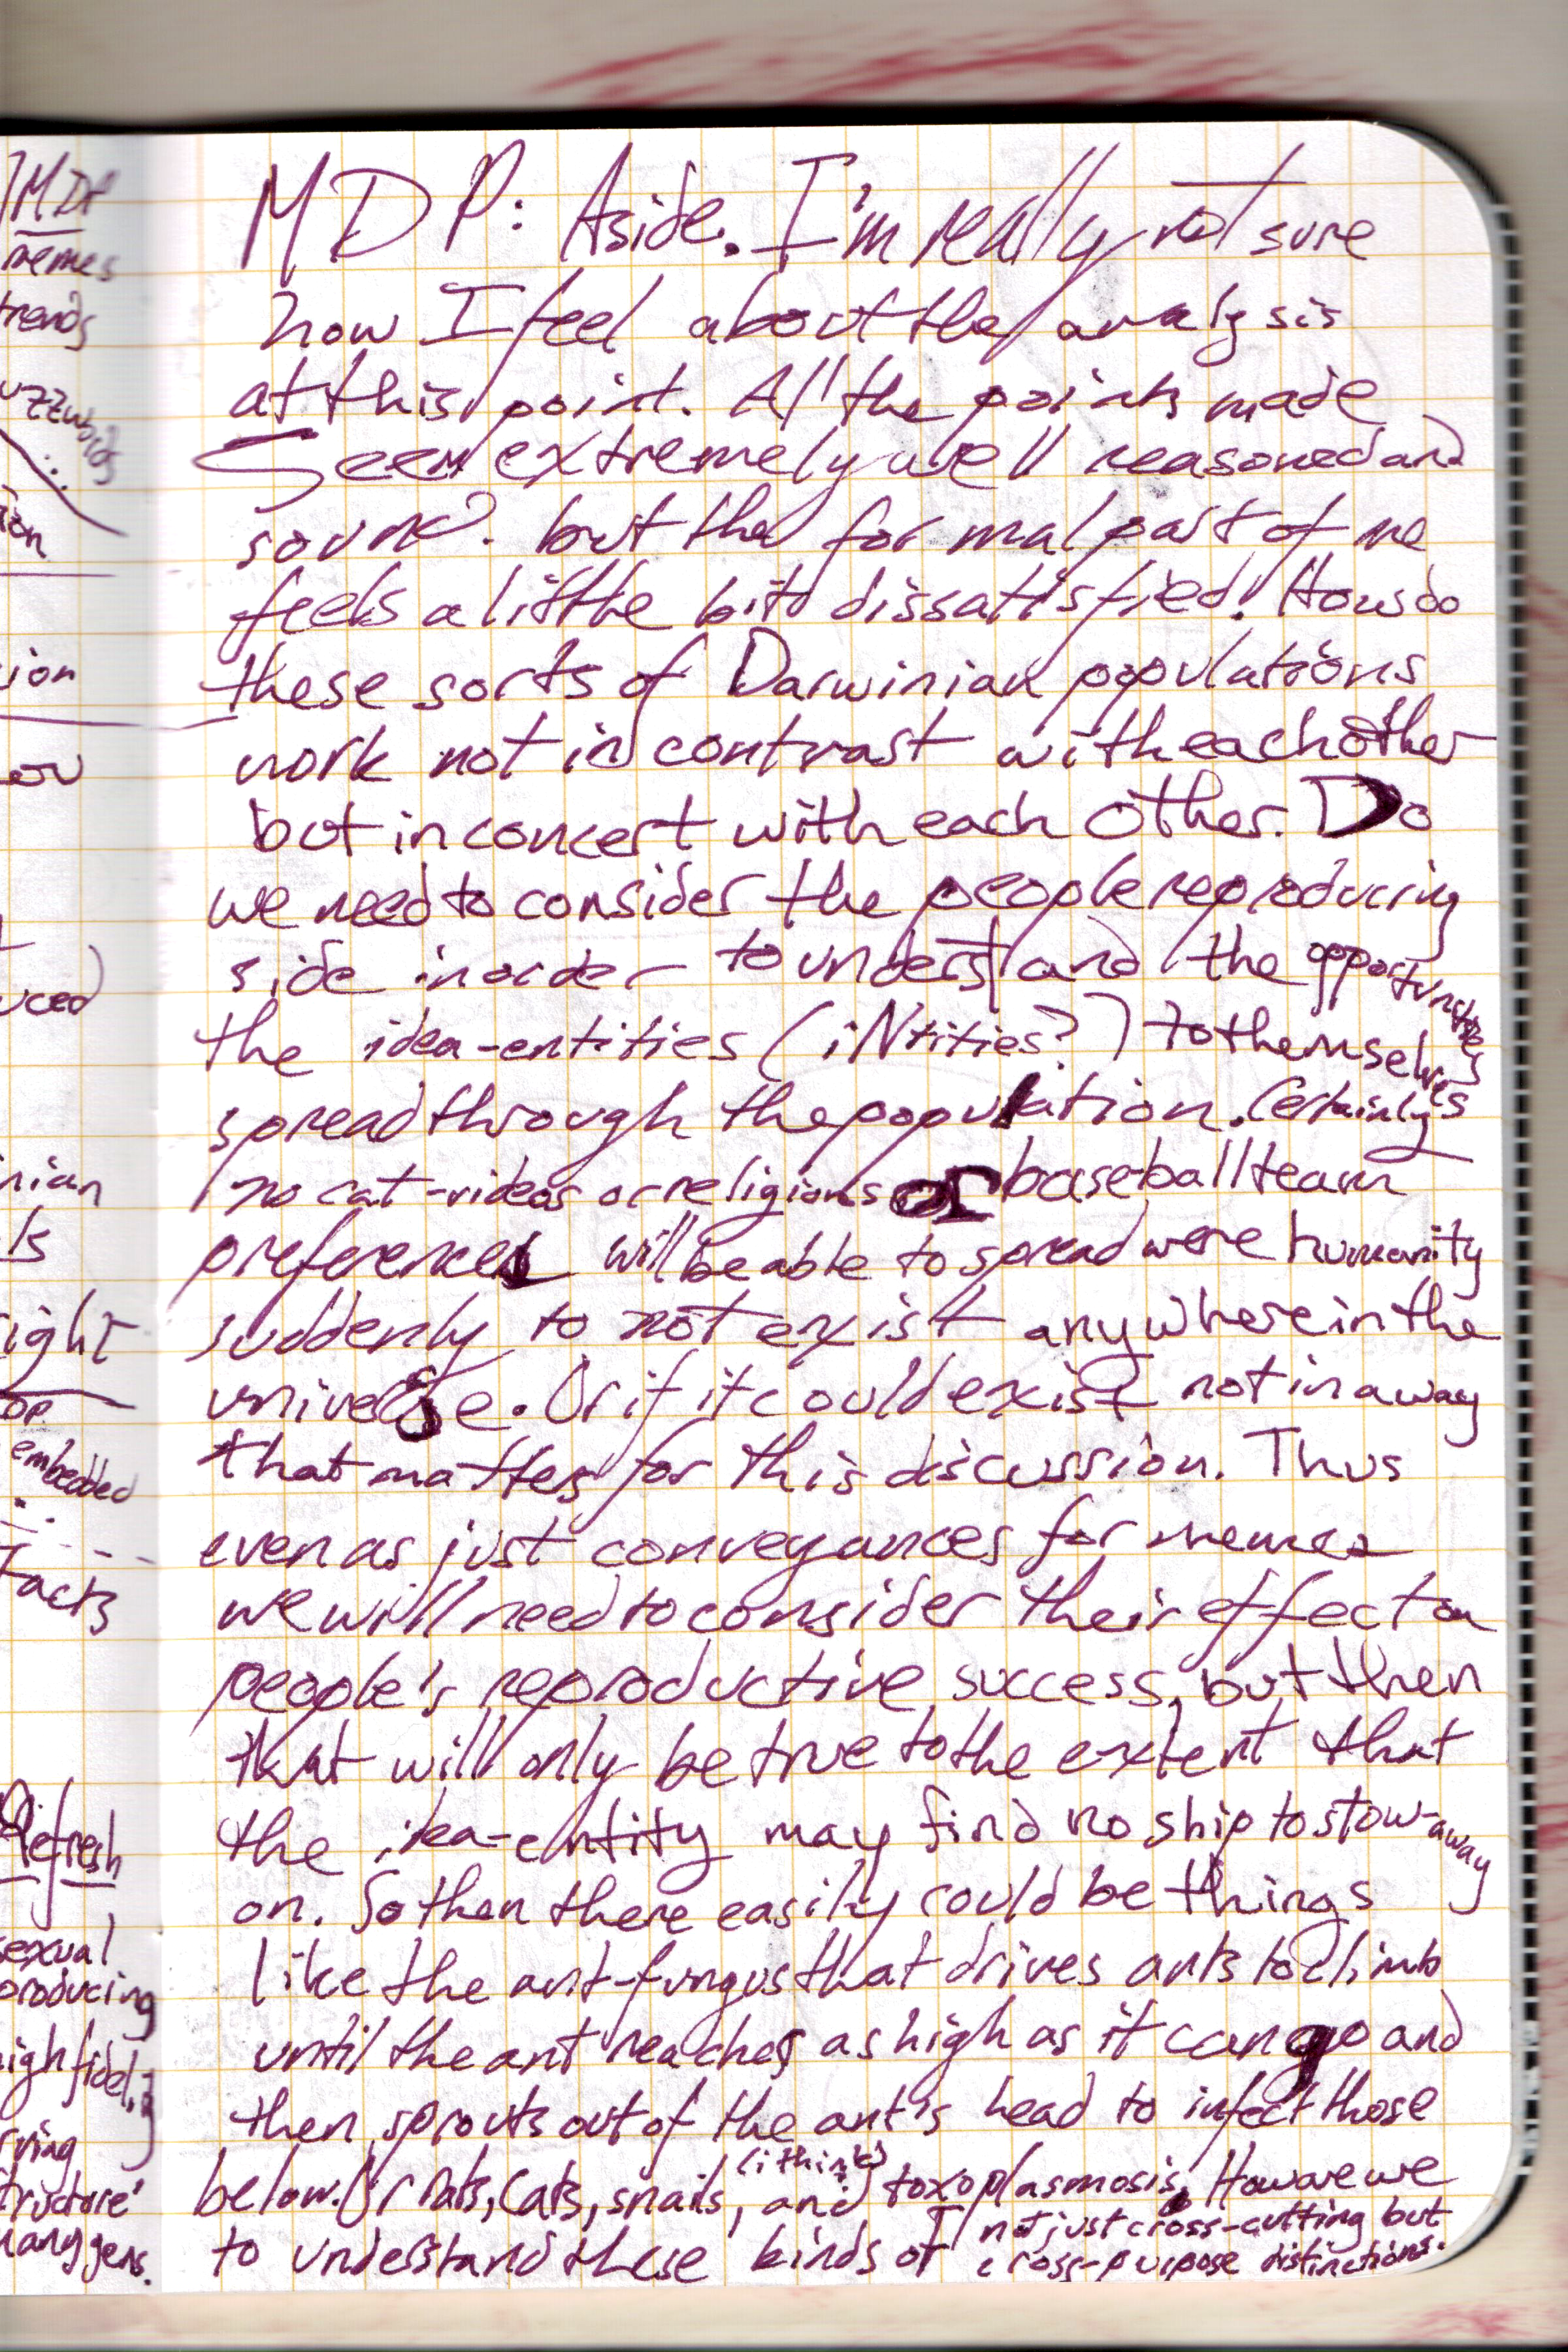 MDP
memes
trends
ion
ion
uced)
ight
embedded
Refresh
sexual
producing
MDP: Aside. I'm really not sure
how I feel about the analysis
at this point. All the points made
seem extremely well reasoned and
sound. but the formal part of me
feels a little bit dissatisfied! How do
these sorts of Darwinian populations
work not in contrast with each other
but in concert with each other. Do
we need to consider the people reproducing
side in order to understand the opportunities
the idea-entities (iNtities?) to themselves
spread through the population. Certainly
no cat-videos or religions or baseball team
preferences will be able to spread were humanity
suddenly to not exist anywhere in the
universe. Or if it could exist not in a way
that matters for this discussion. Thus
even as just conveyances for memes
we will need to consider their effect on
people's reproductive success, but then
that will only be true to the extent that
the idea-entity may find no ship to stow-away
on. So then there easily could be things
like the ant-fungus that drives ants to climb
until the ant reaches as high as it can go and
then sprouts out of the ant's head to infect those
below. Or Rats, Cats, snails, and (i think) toxoplasmosis. How are we
to understand these kinds of not just cross-cutting but
cross-purpose distinctions.